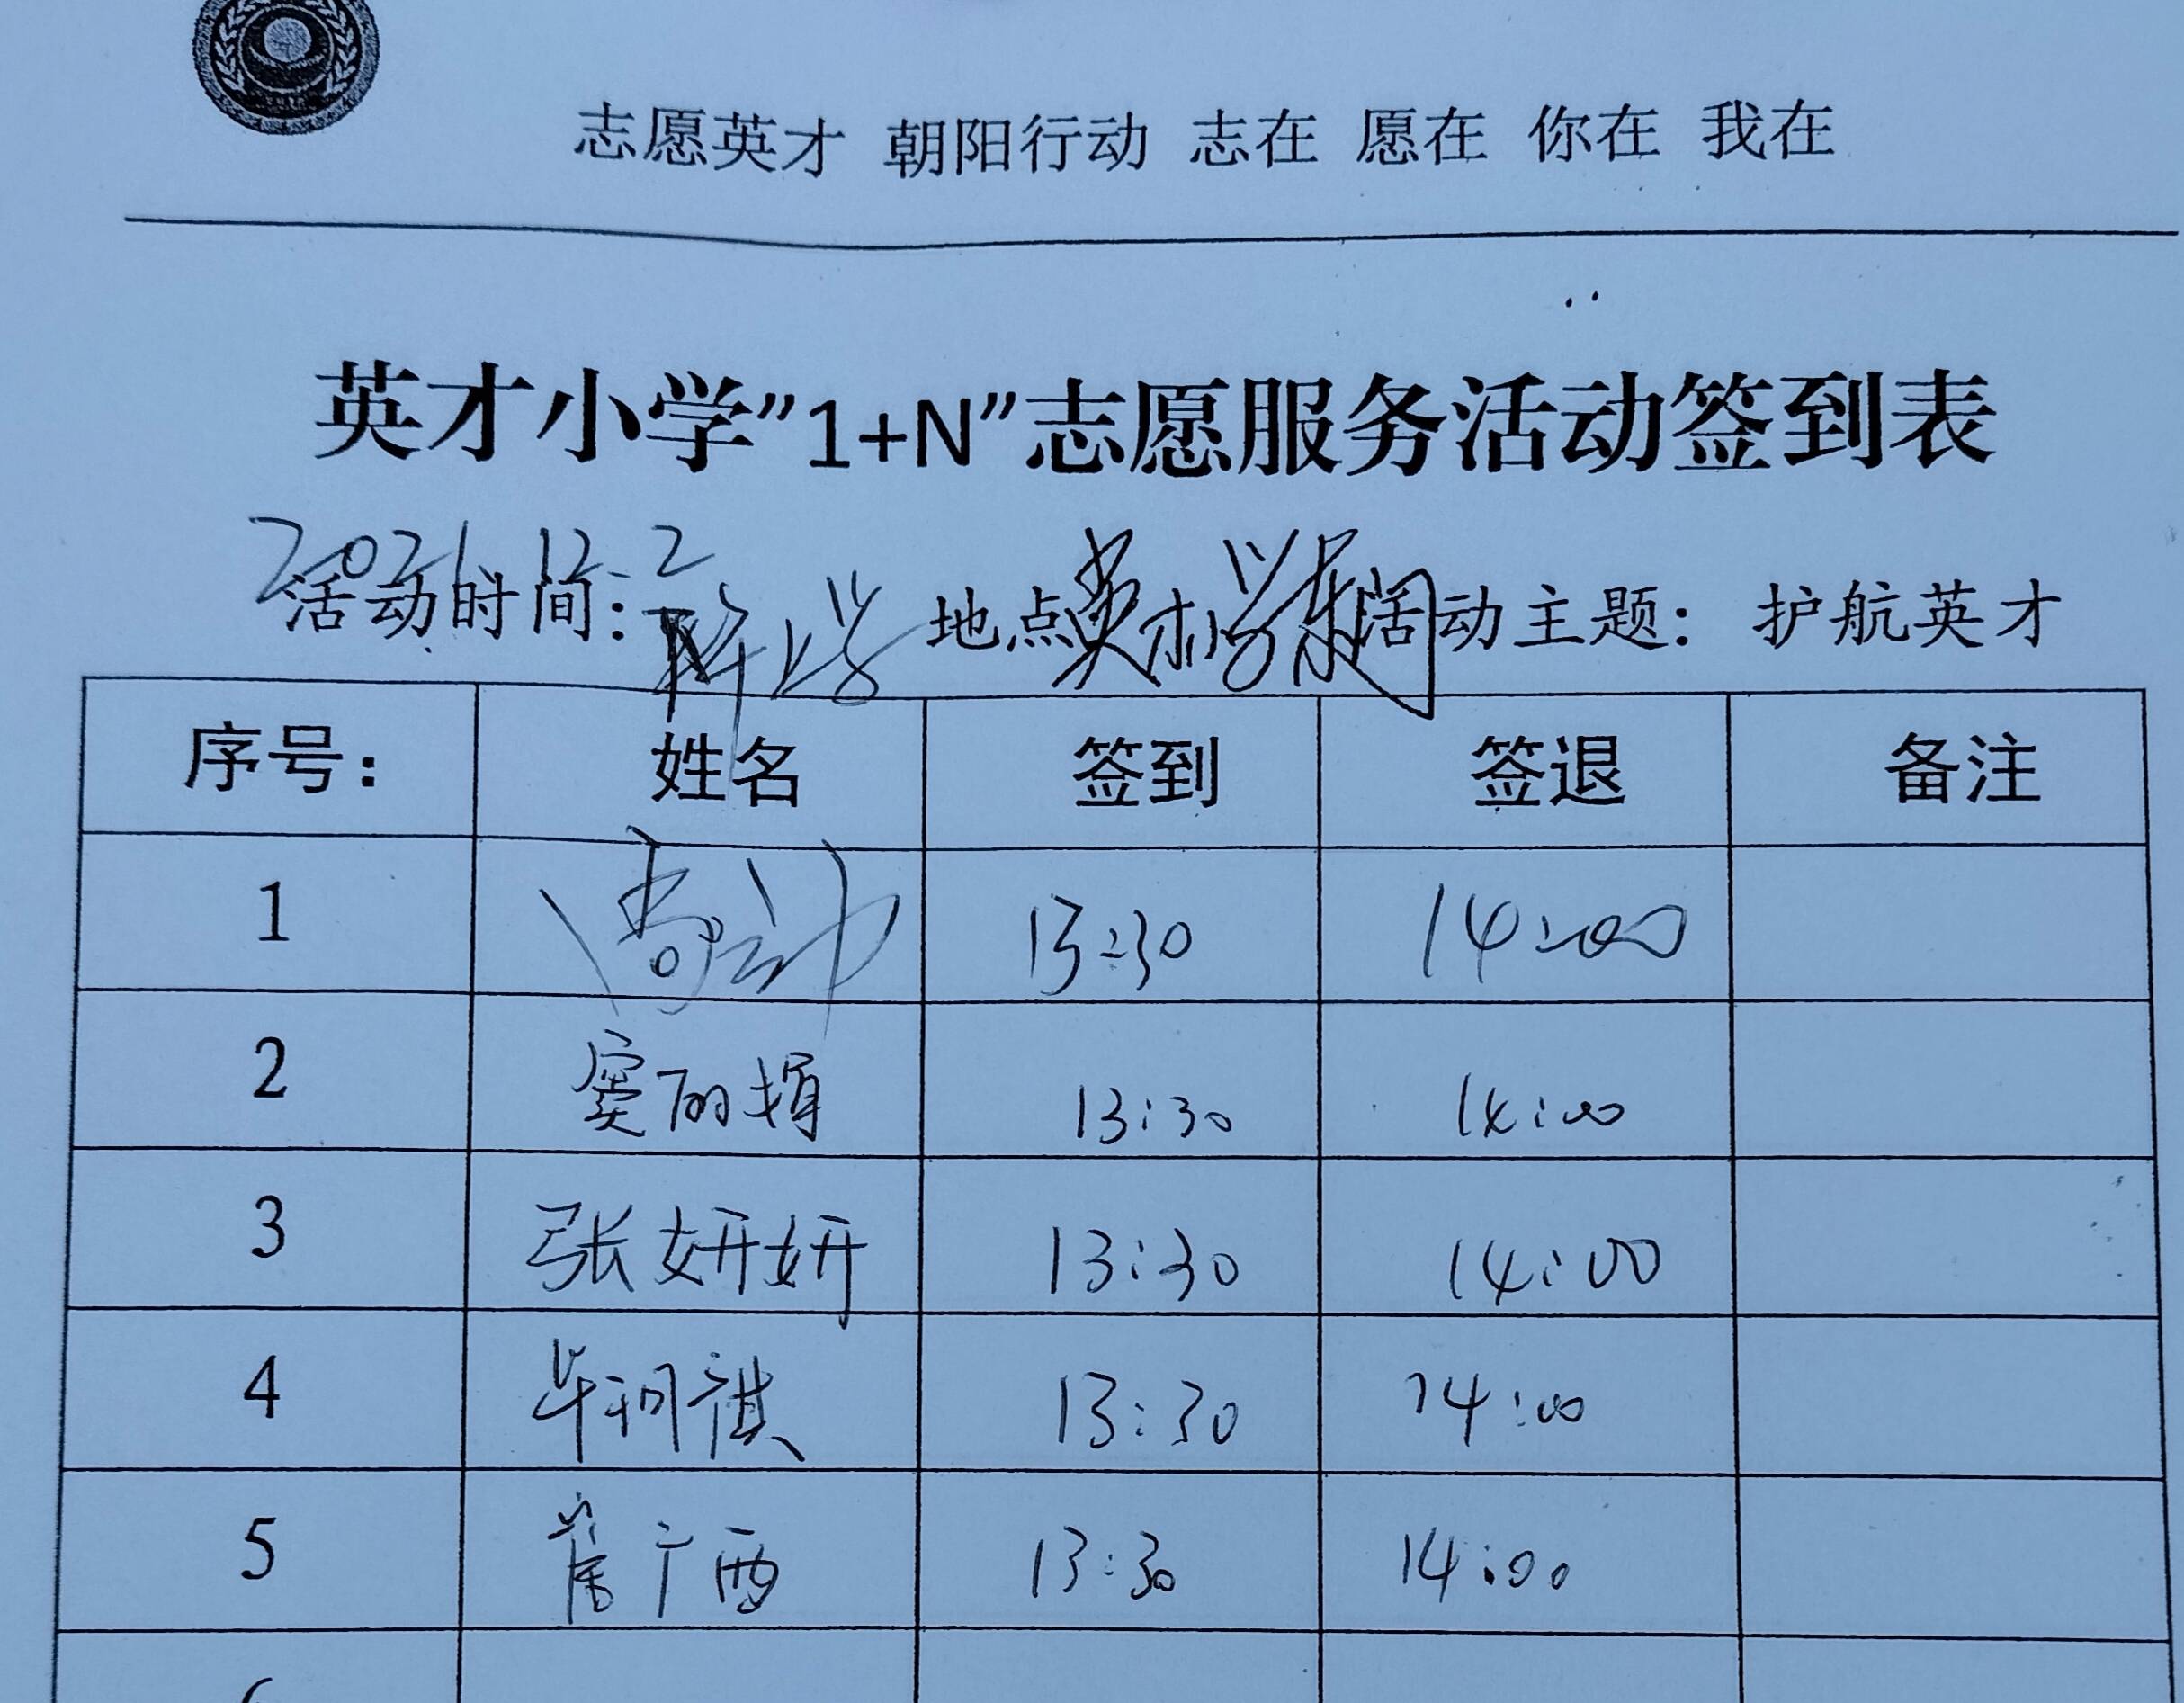 志愿英才 朝阳行动 志在 愿在 你在 我在
英才小学”1+N”志愿服务活动签到表
2021.12.2
活动时间: 地点英才小学东门活动主题: 护航英才
序号: 姓名 签到 签退 备注
1 13:30 14:00
2 窦丽 13:30 14:00
3 张妍妍 13:30 14:00
4 毕祺 13:30 14:00
5 广西 13:30 14:00